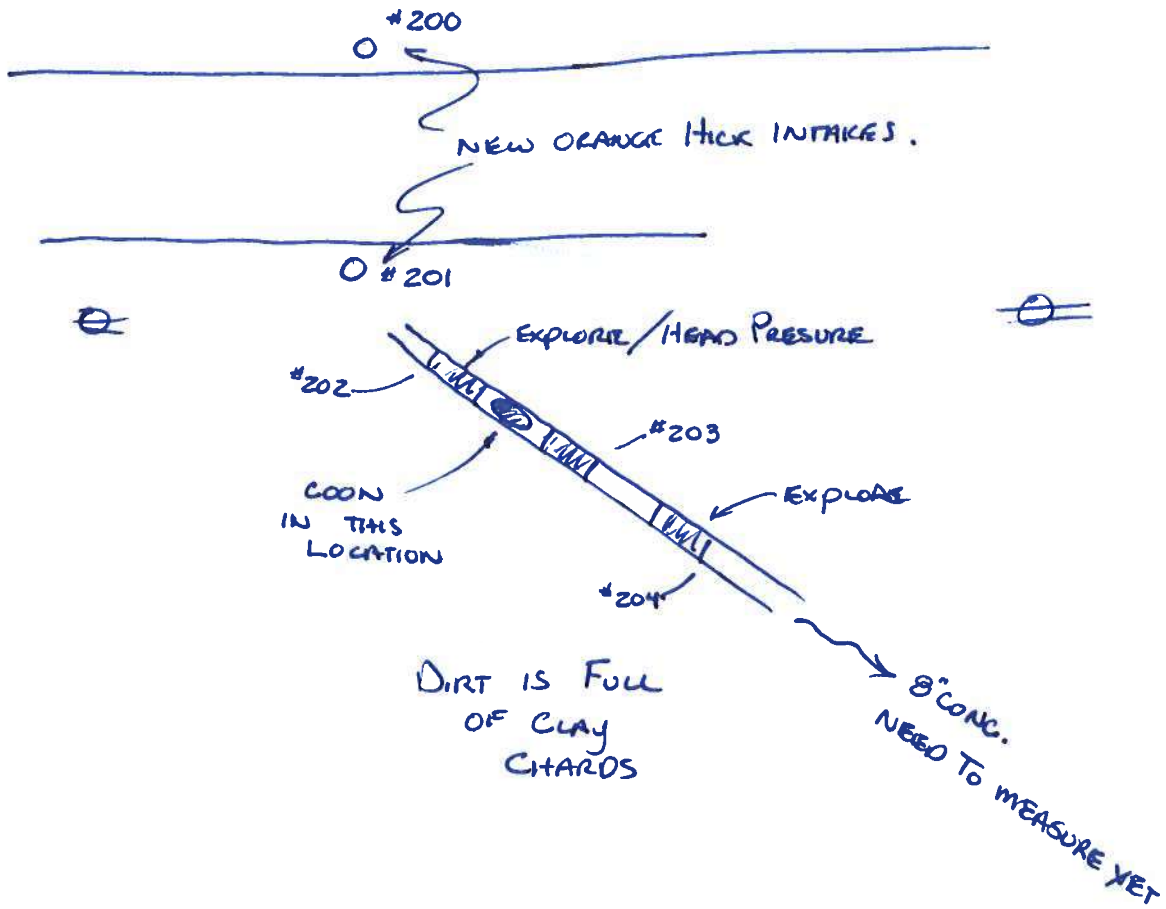 #200
NEW ORANGE HICK INTAKES.
#201
EXPLORE/HEAD PRESURE
#202
#203
COON
IN THIS
LOCATION
EXPLORE
#204
DIRT IS FULL
OF CLAY
CHARDS
8" CONC.
NEED TO MEASURE YET